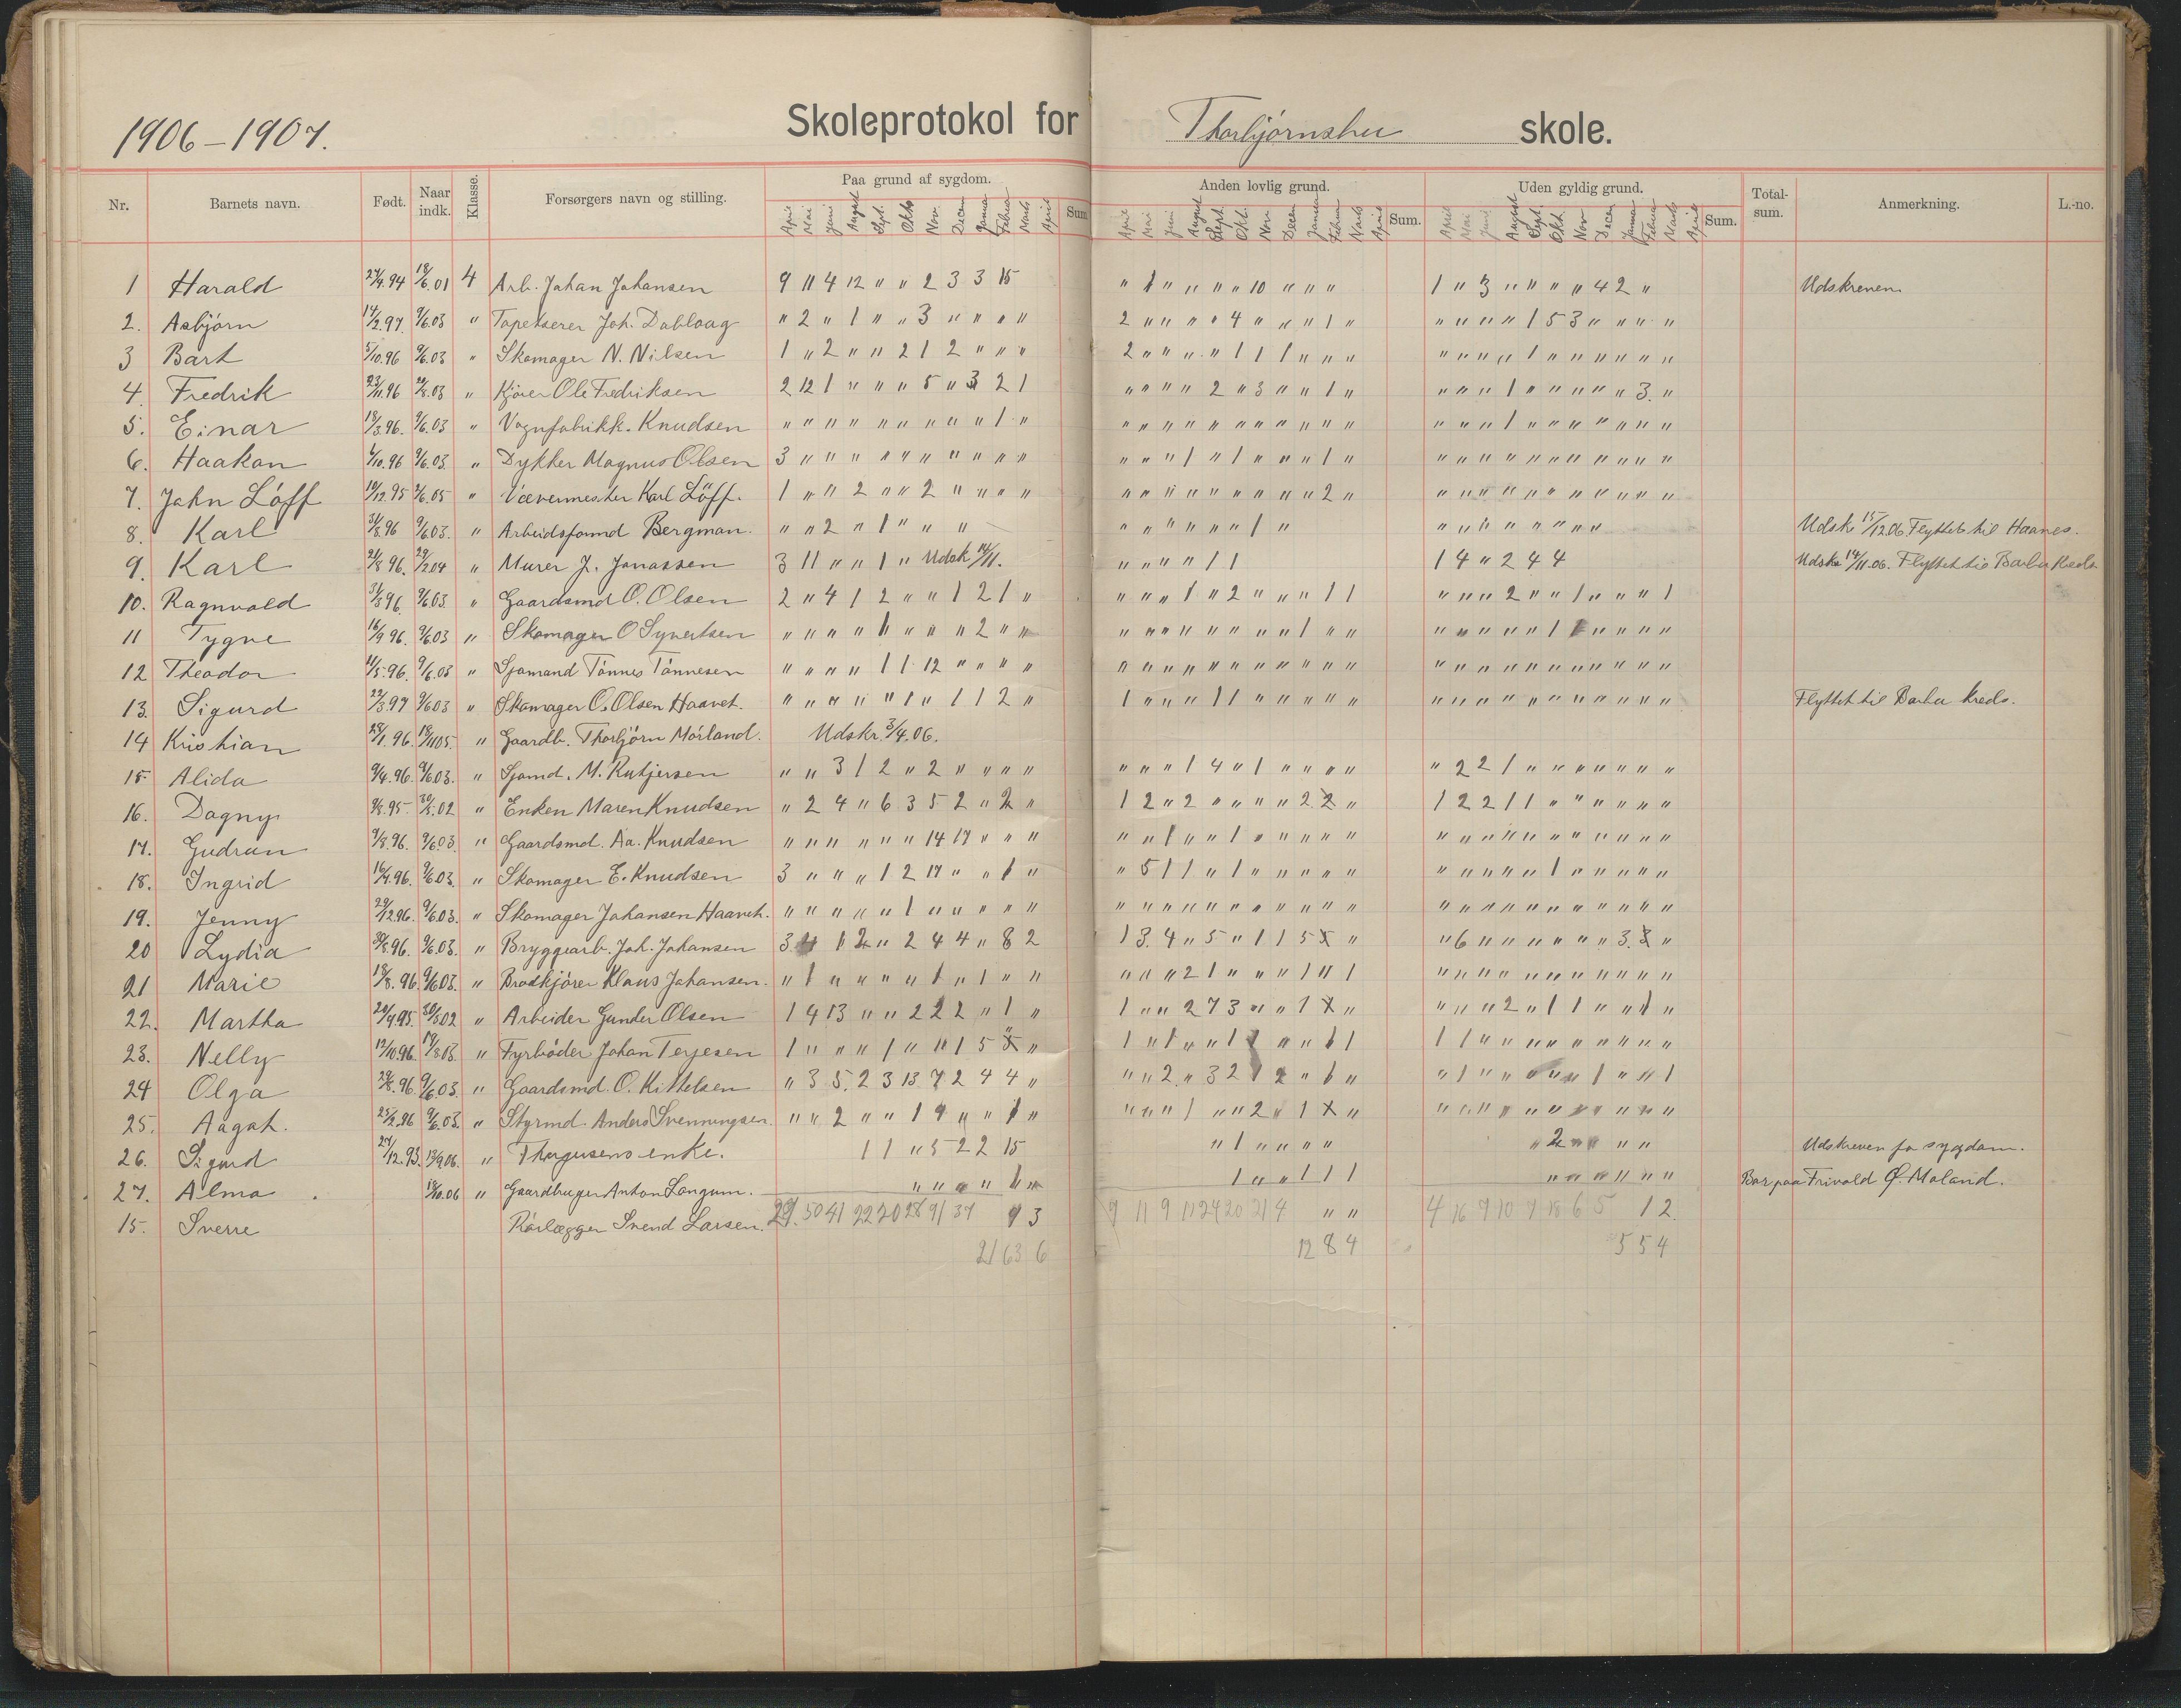 1906-1907. Skoleprotokol for Thorbjørnsbu skole.
Nr. Barnets navn. Født. Naar indk. Klasse. Forsørgers navn og stilling. Paa grund af sygdom. Anden lovlig grund. Uden gyldig grund. Total-sum. Anmerkning. L.-no.
April Mai Juni August Sept. Okto Nov. Decem Januar Februar Marts April Sum April Mai Juni August Sept. Okt. Nov. Decem Januar Februar Marts April Sum. April Mai Juni August Sept. Okt. Nov Decem Januar Februar Marts April Sum.
1 Harald 27/4.94 18/6.01 4 Arb. Johan Johansen 9 11 4 12 " " 2 3 3 15 " 1 " " " " 10 " " " 1 " 3 " " " " 4 2 " Udskreven
2. Asbjørn 14/2.97. 9/6.03 " Tapetserer Joh. Dabloug " 2 " 1 " " 3 " " " " 2 " " " " 4 " " " 1 " " " " " 1 5 3 " " " "
3 Bart 5/10.96 9/6.03 " Skomager N. Nilsen 1 " 2 " " 2 1 2 " " " 2 " " " " 1 1 1 " " " " " " " 1 " " " " " "
4. Fredrik 23/11.96 21/8.03 " Kjører Ole Fredriksen 2 12 1 " " " 5 " 3 2 1 " " " " 2 " 3 " " 1 " " " " 1 " " " " " 3. "
5. Einar 18/3.96. 9/6.03 " Vognfabrikk. Knudsen " " " " " " " " " 1 " " " " " " " " " " " " " " " 1 " " " " " " "
6. Haakon 4/10.96 9/6.03. " Dykker Magnus Olsen 3 " " " " " " " " " " " " " 1 " 1 " " " 1 " " " " " " " " " " " "
7. John Löff 10/12.95 9/6.05 " Vævermester Karl Löff. 1 " " 2 " " 2 " " " " " " " " " " " " " 2 " " " " " " " " " " " "
8. Karl 31/8.96 9/6.03. " Arbeidsformd Bergman. " " 2 " 1 " " " " " " " " " 1 " " " " " " " " " Udsk. 15/12.06. Flyttet til Haanes.
9. Karl 21/8 96. 29/2.04 " Murer J. Jonassen 3 11 " " 1 " Udsk 14/11. " " " " 1 1 1 4 " 2 4 4 Udskr 14/11.06. Flyttet til Barbu Kreds
10. Ragnvald 31/8 96. 9/6.03. " Gaardsmd O. Olsen 2 " 4 1 2 " " 1 2 1 " " " " 1 " 2 " " " 1 1 " " " 2 " " 1 " " " 1
11 Tygve 16/9 96. 9/6.03 " Skomager O Syvertsen " " " " 1 " " " 2 " " " " " " " " " " 1 " " " " " " " 1 " " " " "
12 Theodor 11/5.96. 9/6.03 " Sjømand Tønnes Tønnesen " " " " 1 1 12 " " " " " " " " " " " " " " " " " " " " " " " " " " "
13. Sigurd 22/3.97 9/6.03 " Skomager O. Olsen Haavet. " " " " " 1 " 1 1 2 " 1 " " " 1 1 " " " " " " " " " " " " " " " " Flyttet til Barbu Kreds.
14 Kristian 28/1.96. 18/11 05. " Gaardb. Thorbjørn Mørland. Udskr. 3/4.06.
15. Alida 9/4.96. 9/6.03. " Sjømd. M. Rutjersen " " 3 1 2 " 2 " " " " " " " 1 4 " 1 " " " " " 2 2 1 " " " " " " "
16. Dagny 9/8.95. 30/5.02 " Enken Maren Knudsen " 2 4 " 6 3 5 2 " 2 " 1 2 " 2 " " " " 2 2 " 1 2 2 1 1 " " " " " "
17. Gudrun 9/8.96. 9/6.03. " Gaardsmd. Aa. Knudsen " " " " " " 14 17 " " " " " 1 " " 1 " " " " " " " " " " " " " " " "
18. Ingrid 16/4.96. 9/6.03. " Skomager E. Knudsen 3 " " " 1 2 17 " " 1 " " 5 1 1 " 1 " " " " " " " " " " 1 " " " " "
19. Jenny 29/12.96. 9/6.03. " Skomager Johansen Haavet. " " " " " 1 " " " " " " " " " " " " " " " " " " " " " " " " " " "
20 Lydia 30/8.96. 9/6.03. " Bryggearb. Joh. Johansen 3. 4 1 2 " 2 4 4 " 8 2 1 3. 4 " 5 " 1 1 5 " " 6 " " " " " " 3. "
21 Marie 18/8. 96. 9/6.03. " Brødkjører Klaus Johansen. " 1 " " " " 1 " 1 " " " " " 2 1 " " " 1 " 1 " " " " " " " " " " "
22. Martha 20/9.95. 30/5.02 " Arbeider Gunder Olsen 1 4 13 " " 2 2 2 " 1 " 1 " " 2 7 3 " " 1 " " " " 2 " 1 1 " " 1 "
23. Nelly 12/10.96. 19/8.03. " Fyrbøder Johan Terjesen 1 " " " 1 " 11 1 5 " 1 " 1 " " 1 " " 1 1 1 1 " " " " " " " " "
24 Olga 29/8.96. 9/6.03. " Gaardsmd. O. Kittelsen " 3 5. 2 3 13 7 2 4 4 " " " 2. " 3 2 1 2 " 1 " " 1 " " " " " 1 " " 1
25. Aagot. 25/2.96 9/6.03. " Styrmd. Anders Svenningsen. " " 2 " " 1 9 " " 1 " " " " 1 " " 2 " 1 " " " " " " " " " " " "
26. Sigurd 24/12.93. 13/9.06. " Thygesens enke. 1 1 " 5 2 2 15 " 1 " " " " " 2 " " " " Udskreven for sygdom.
27. Alma 18/10.06 " Gaardbruger Anton Langum. " " " " 1 " 1 " " 1 1 1 " " " " " " Bor paa Frivold Ø. Moland.
15. Sverre Rørlægger Svend Larsen. 29. 50 41 22 20 28 91 37 9 3 9 11 9 11 24 20 21 4 " " 4 16 9 10 7 18 6 5 1 2.
21 63 6 12 8 4 5 5 4